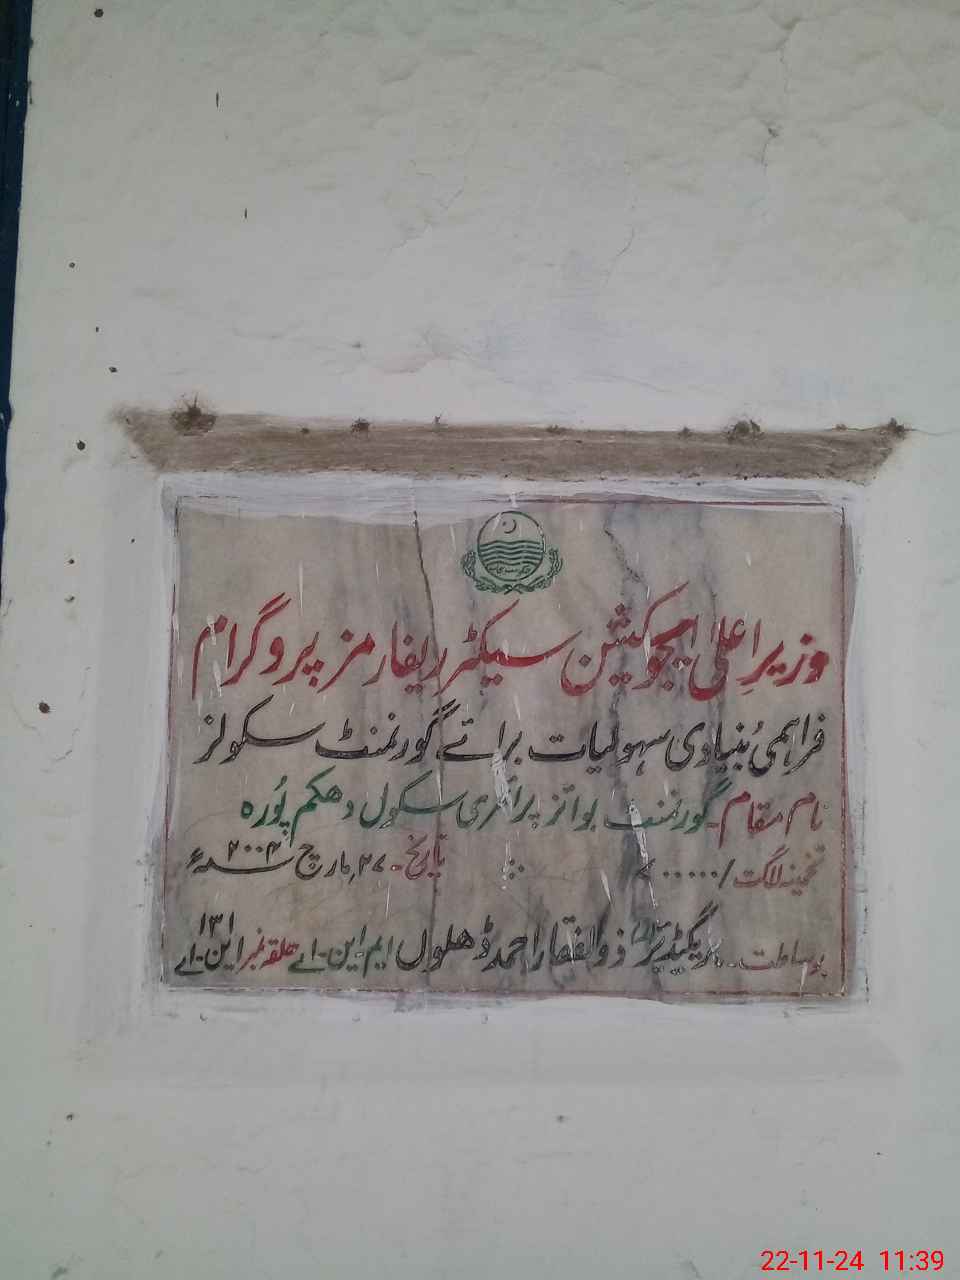 وزیرِ اعلیٰ ایجوکیشن سیکٹر ریفارمز پروگرام
فراہمی بُنیادی سہولیات برائے گورنمنٹ سکولز
نام مقام۔ گورنمنٹ بوائز پرائمری سکول دھکم پُورہ
تخمینہ لاگت /۷۰۰۰۰۰ تاریخ۔ ۲۷ مارچ ۲۰۰۴ء
بوساطت۔ بریگیڈیئر ذوالفقار احمد ڈھلوں ایم۔این۔اے حلقہ نمبر این۔اے ۱۳۱
22-11-24 11:39